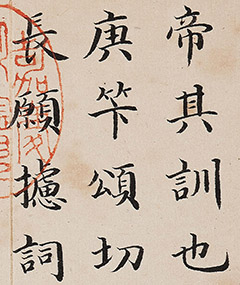 帝其訓也
庚笇頌切
長願攄詞